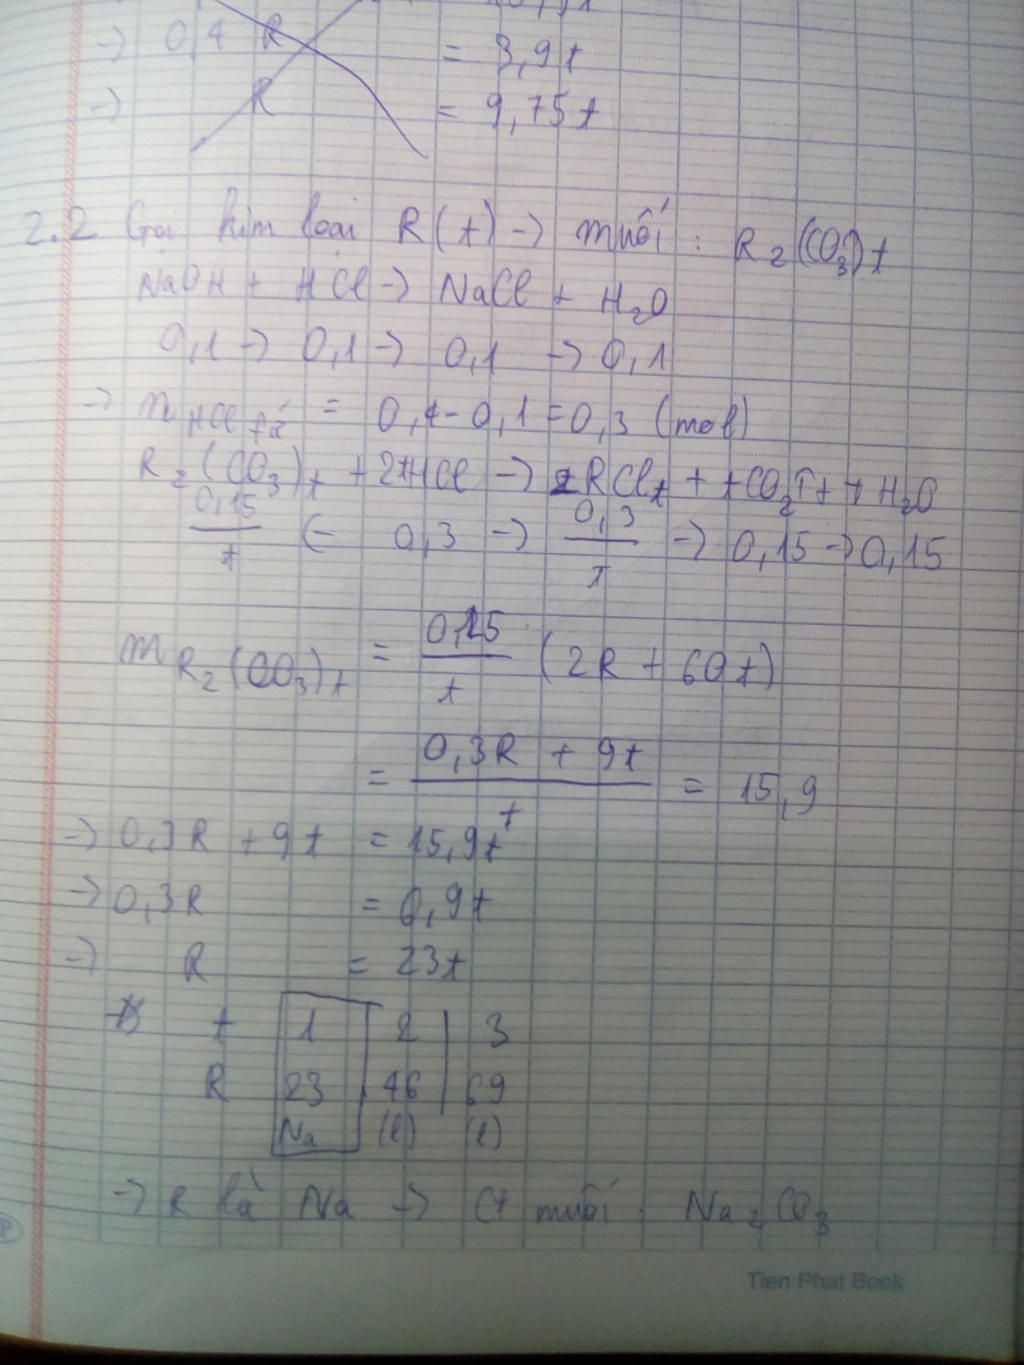 -> 0,4 R = 3,9t
-> R = 9,75t
2.2 Gọi kim loại R(t) -> muối : R2(CO3)t
NaOH + HCl -> NaCl + H2O
0,1 -> 0,1 -> 0,1 -> 0,1
-> nHCl = 0,4 - 0,1 = 0,3 (mol)
R2(CO3)t + 2tHCl -> 2RClt + tCO2↑ + t H2O
0,15/t <- 0,3 -> 0,3/t -> 0,15 -> 0,15
mR2(CO3)t = 0,15/t (2R + 60t)
= (0,3R + 9t)/t = 15,9
-> 0,3R + 9t = 15,9t
-> 0,3R = 6,9t
-> R = 23t
t 1 2 3
R 23 46 69
Na (l) (l)
-> R là Na -> Ct muối : Na2CO3
Tien Phat Book